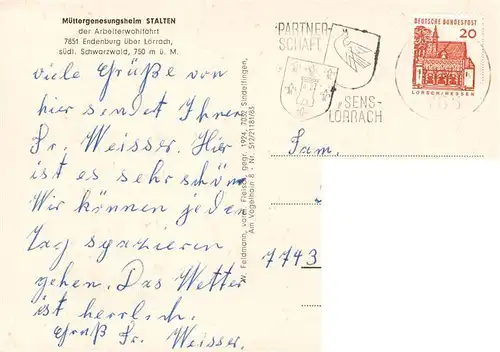 Müttergenesungsheim STALTEN
der Arbeiterwohlfahrt
7851 Endenburg über Lörrach,
südl. Schwarzwald, 750 m ü. M.
viele Grüße von
hier sendet Ihnen
Fr. Weisser. Hier
ist es sehr schön
Wir können jeden
Tag spazieren
gehen. Das Wetter
ist herrlich.
Gruß Fr. Weisser.
W. Feldmann, vorm. Fleisch, gegr. 1924, 7032 Sindelfingen,
Am Vogelhain 8 · Nr. 512/2118163
PARTNER-
SCHAFT
SENS-
LÖRRACH
DEUTSCHE BUNDESPOST
20
LORSCH/HESSEN
Fam.
7743